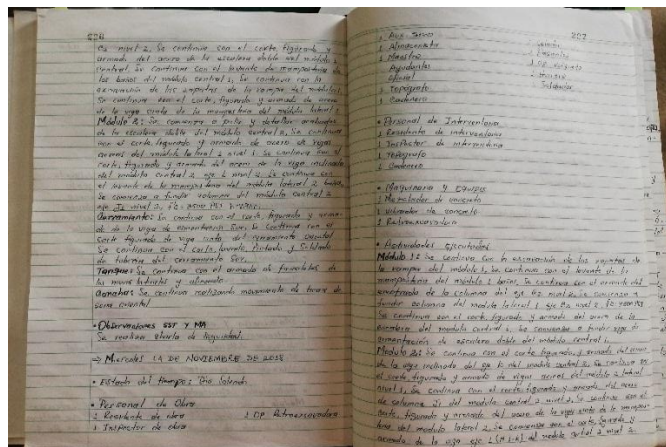 226
E2 nivel 2, Se continua con el corte, figurado y
armado del acero de la escalera doble del módulo
central, Se continua con el levante de mampostería de
los baños del módulo central 1, Se continua con la
excavación de las zapatas de la rampa del módulo 1,
Se continua con el corte, figurado y armado de acero
de la viga cinta de la mampostería del módulo lateral 1
Módulo 2: Se comienza a pulir y detallar acabados
de la escalera doble del módulo central 2, Se continua
con el corte figurado y armado de acero de vigas
aereas del modulo lateral 2 nivel 1. Se continua con el
corte, figurado y armado del acero de la viga inclinada
del módulo central 2 eje k nivel 2. Se continua con
el levante de la mampostería del módulo lateral 2 baños,
Se comienza a fundir columna del módulo central 2
eje J1 nivel 2,
Cerramiento: Se continua con el corte, figurado y arma-
do de la viga de cimentación Sur, Se continua con el
corte figurado de viga cinta del cerramiento
Se continua con el corte, levante, Pintado y Soldado
de tuberia del cerramiento Sur,
Tanque: Se continua con el armado de formaletas de
los muros laterales y alineado
Canchas: Se continua realizando movimiento de tierra de
zona
• Observaciones SST Y MA
Se realiza charla de seguridad.
→ Miercoles 14 DE NOVIEMBRE DE 2018
• Estado del tiempo: Dia Soleado
• Personal de Obra
2 Residente de obra 1 OP Retroexcavadora
1 Inspector de obra
227
1 Aux
1 Almacenista
1 Maestro
Ayudantes
Oficial
1 Topógrafo
1 Cadenero
• Personal de Interventoria
1 Residente de interventoria
1 Inspector de interventoria
1 Topógrafo
1 Cadenero
• Maquinaria y Equipo
Mezclador de concreto
1 Vibrador de concreto
1 Retroexcavadora
• Actividades Ejecutadas
Módulo 1: Se continua con la excavación de las zapatas de
la rampa del módulo 1, Se continua con el levante de la
mampostería del módulo 1 baños, Se continua con el armado del
encofrado de la columna del eje nivel 2, Se comienza a
fundir columna del modulo lateral 1 eje
Se continua con el corte, figurado y armado del acero de la
escalera del modulo central 1, Se comienza a fundir viga de
cimentación de escalera doble del módulo central 1.
Modulo 2: Se continua con el corte figurado y armado del acero
de la viga inclinada del eje k del modulo central 2, Se continua con
el corte, figurado y armado de vigas aereas del módulo 2 lateral
nivel 1, Se continua con el corte figurado y armado del acero
de columna J1 del modulo central 2 nivel 2, Se continua con el
corte, figurado y armado del acero de la viga cinta de la mampos-
teria del módulo lateral 2 Se comienza con el corte, figurado y
armado de la viga eje del módulo central 2 nivel 2